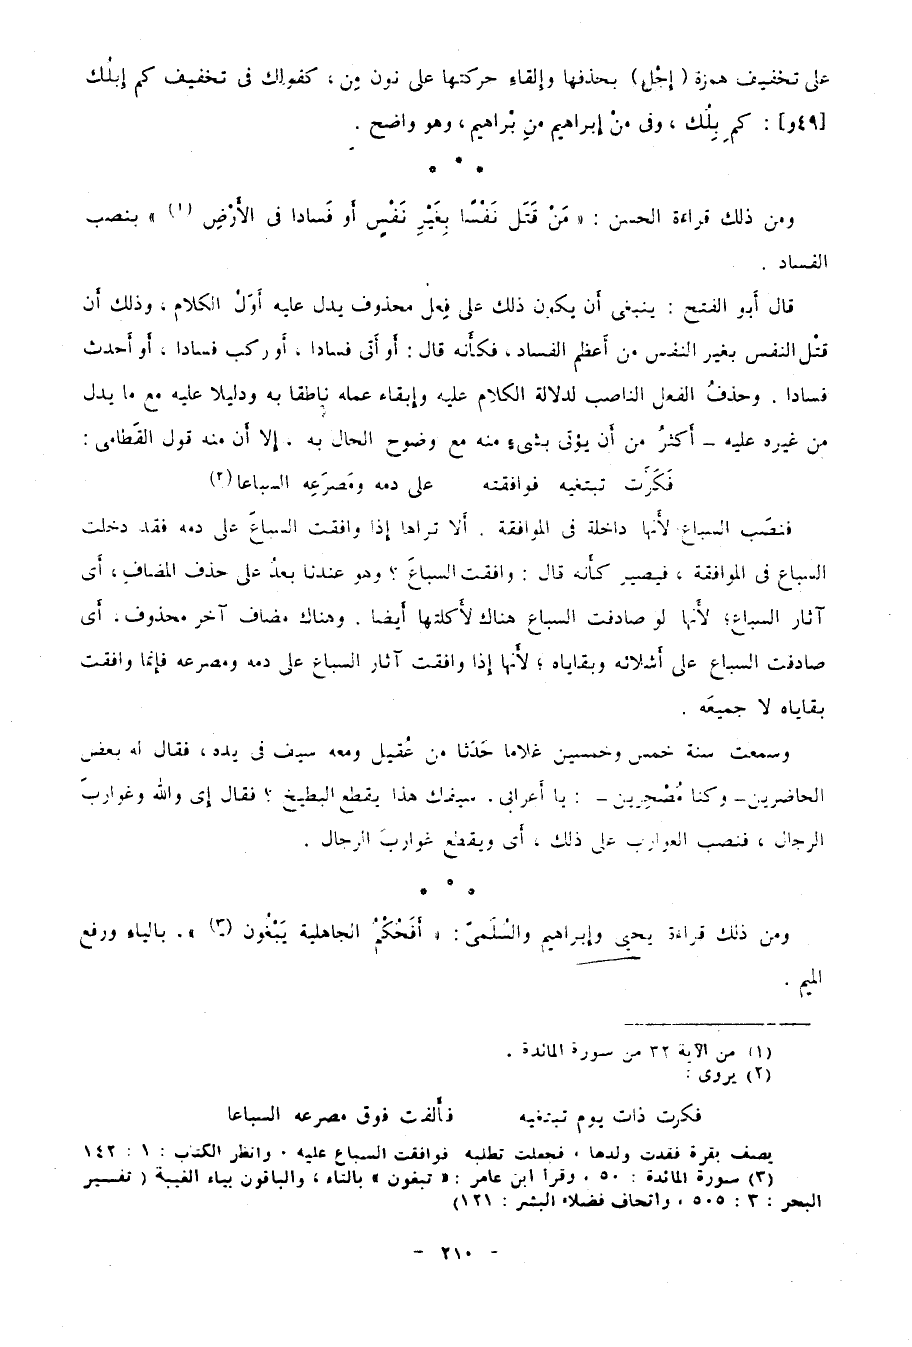 على تخفيف همزة (إجْل) بحذفها وإلقاء حركتها على نون مِن ، كقولك فى تخفيف كم إبلُك
[٤٩و] : كمِ بِلُك ، وفى منْ إبراهيم منِ بْراهيم ، وهو واضح .
* * *
ومن ذلك قراءة الحسن : « مَنْ قَتَل نَفْسًا بِغَيْرِ نَفْسٍ أو فَسادا فى الأَرْضِ (١) » بنصب
الفساد .
قال أبو الفتح : ينبغى أن يكون ذلك على فِعل محذوف يدل عليه أَوّلُ الكلام ، وذلك أن
قتْل النفس بغير النفس من أعظم الفساد ، فكأنه قال : أو أتى فسادا ، أو ركب فسادا ، أو أحدث
فسادا . وحذفُ الفعل الناصب لدلالة الكلام عليه وإبقاء عمله ناطقا به ودليلا عليه مع ما يدل
من غيره عليه – أكثرُ من أن يؤتى بشىءٍ منه مع وضوح الحال به . إلا أن منه قول القُطامى :
فَكَرَّت تبتغيه فوافقته على دمه ومَصرَعِه السباعا(٢)
فنصَب السباع لأنها داخلة فى الموافقة . ألا تراها إذا وافقت السباعَ على دمه فقد دخلت
السباع فى الموافقة ، فيصير كأنه قال : وافقت السباعَ ؟ وهو عندنا بعدُ على حذف المضاف ، أى
آثار السباع؛ لأنها لو صادفت السباع هناك لأكلتها أيضا . وهناك مضاف آخر محذوف، أى
صادفت السباع على أشلائه وبقاياه ؛ لأنها إذا وافقت آثار السباع على دمه ومصرعه فإنما وافقت
بقاياه لا جميعَه .
وسمعت سنة خمس وخمسين غلاما حَدَثا من عُقيل ومعه سيف فى يده ، فقال له بعض
الحاضرين – وكنا مُصْحِرين – : يا أعرابى . سيفك هذا يقطع البطيخ ؟ فقال إى والله وغواربَ
الرجال ، فنصب الغوارب على ذلك ، أى ويقطع غواربَ الرجال .
* * *
ومن ذلك قراءة يحيى وإبراهيم والسُلَمىّ : « أَفَحُكْمُ الجاهلية يَبْغُون (٣) » . بالياء ورفع
الميم .
(١) من الآية ٣٢ من سورة المائدة .
(٢) يروى :
فكرت ذات يوم تبتغيه فألفت فوق مصرعه السباعا
يصف بقرة فقدت ولدها ، فجعلت تطلبه فوافقت السباع عليه . وانظر الكتاب : ١ : ١٤٢
(٣) سورة المائدة : ٥٠ ، وقرأ ابن عامر : « تبغون » بالتاء ، والباقون بياء الغيبة ( تفسير
البحر : ٣ : ٥٠٥ ، واتحاف فضلاء البشر : ١٢١)
- ٢١٠ -